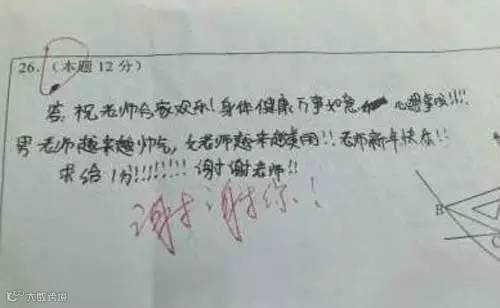 26. (本题 12 分)
答: 祝老师合家欢乐! 身体健康 万事如意 心想事成!!!!
男老师越来越帅气, 女老师越来越美丽!! 老师新年快乐!!
求给1分!!!!!!!! 谢谢老师!!
谢谢你!!
B
大数跨境